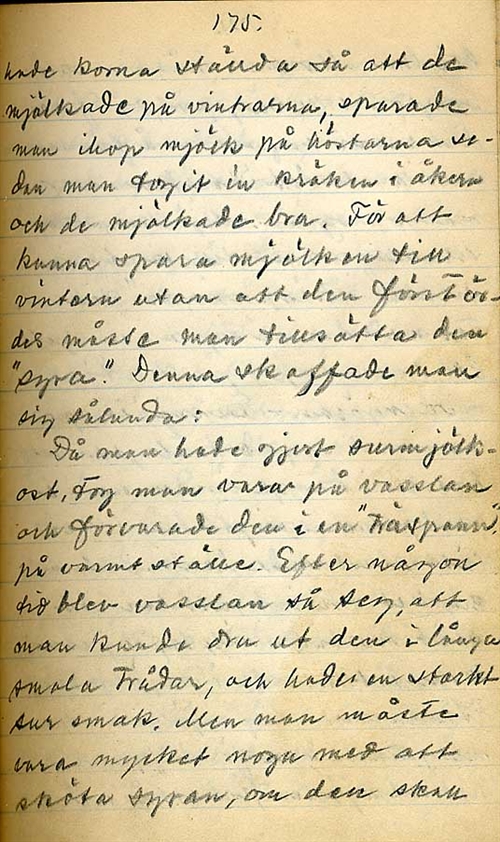 175.
hade korna ställda så att de
mjölkade på vintrarna, sparade
man ihop mjölk på höstarna se-
dan man tagit in kräken i åkern
och de mjölkade bra. För att
kunna spara mjölken till
vintern utan att den förstör-
des måste man tillsätta den
"syra." Denna skaffade man
sig sålunda:
Då man hade gjort surmjölk-
ost, tog man vara på vasslan
och förvarade den i en "träspann",
på varmt ställe. Efter någon
tid blev vasslan så seg, att
man kunde dra ut den i långa
smala trådar, och hade en starkt
sur smak. Men man måste
vara mycket noga med att
sköta syran, om den skall